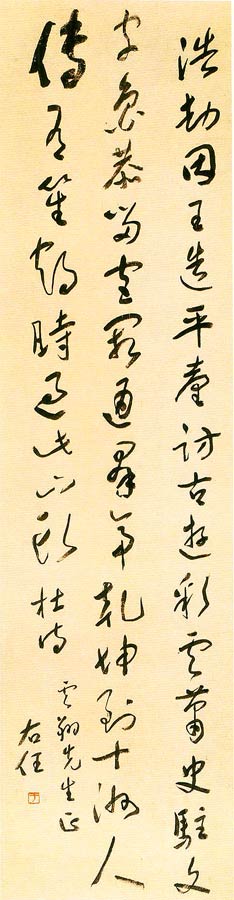 浩劫因王造平臺訪古遊彩雲蕭史駐文
字魯恭留宮闕通羣帝乾坤到十洲人
傳有笙鶴時過此山頭 杜詩
雲翔先生正
右任